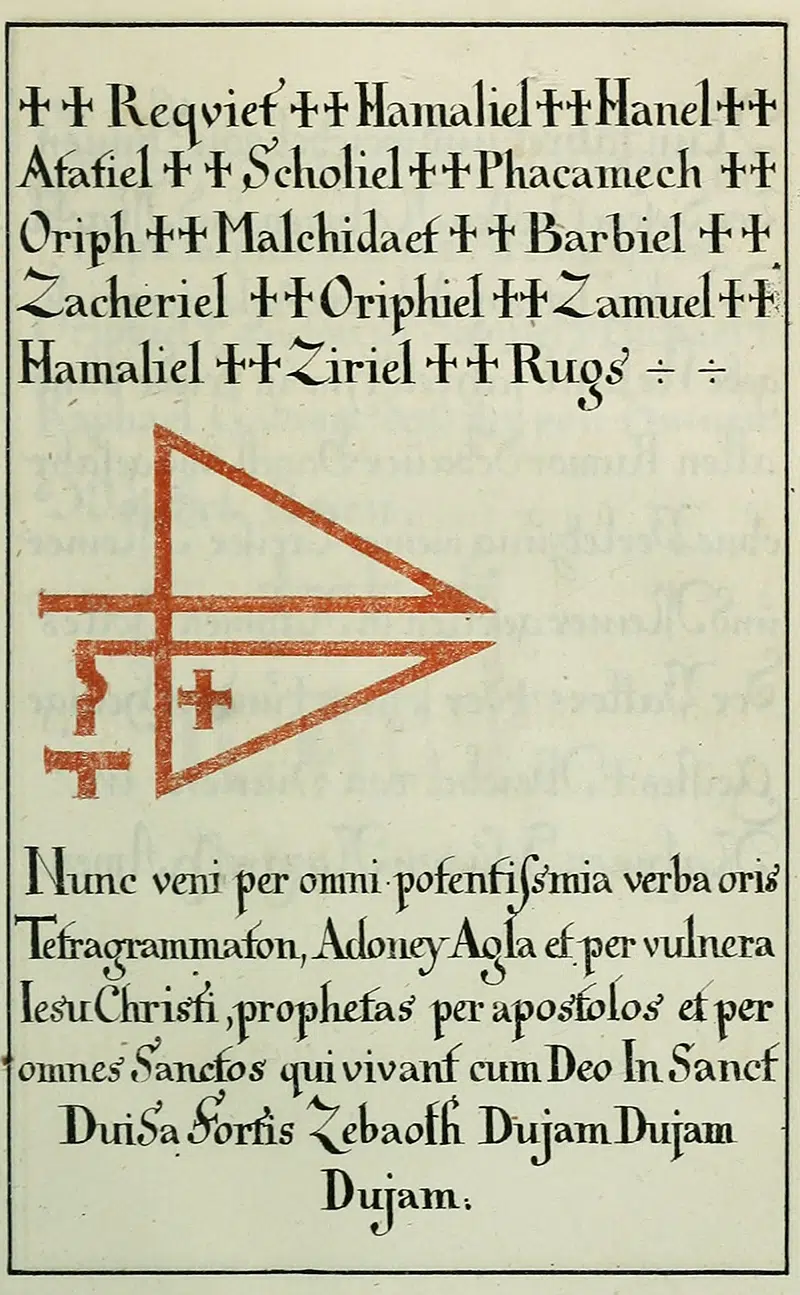 ++ Reqviet ++ Hamaliel ++ Hanel ++
Atatiel ++ Scholiel ++ Phacamech ++
Oriph ++ Malchidaet ++ Barbiel ++
Zacheriel ++ Oriphiel ++ Zamuel ++
Hamaliel ++ Ziriel ++ Rugs ÷ ÷
Nunc veni per omni potentiſsmia verba oris
Tetragrammaton, Adoney Agla et per vulnera
Iesu Christi, prophetas per apostolos et per
omnes Sanctos qui vivant cum Deo In Sanct
DuiSa Fortis Zebaoth Dujam Dujam
Dujam.